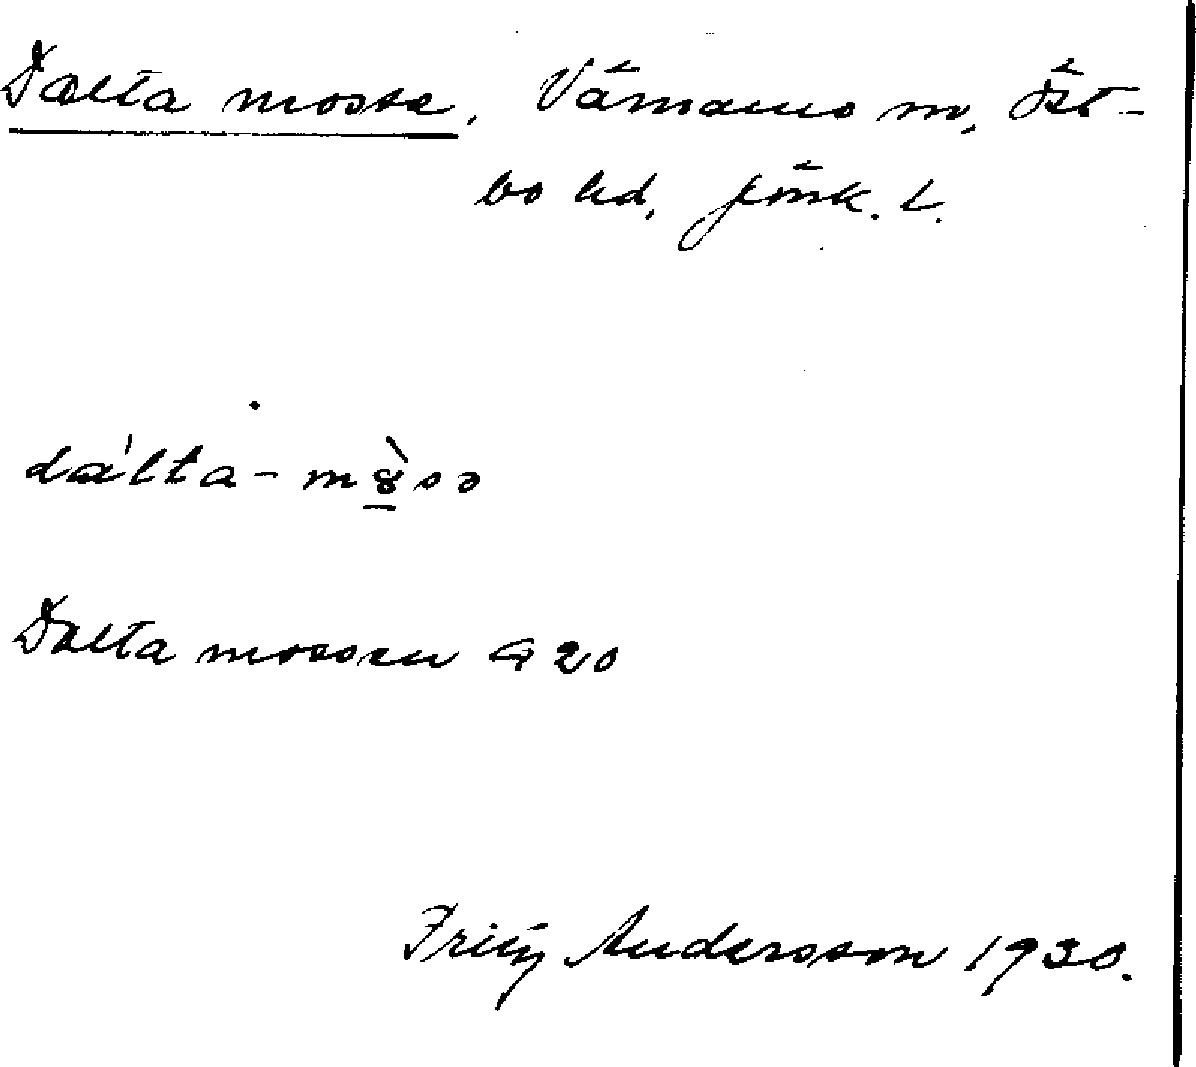 Dælta mosse, Värnamo m, Öst-
bo hd, Jönk. L.
dæ'lta-m8̀sə
Dælta mossen G 20
Fritz Andersson 1930.